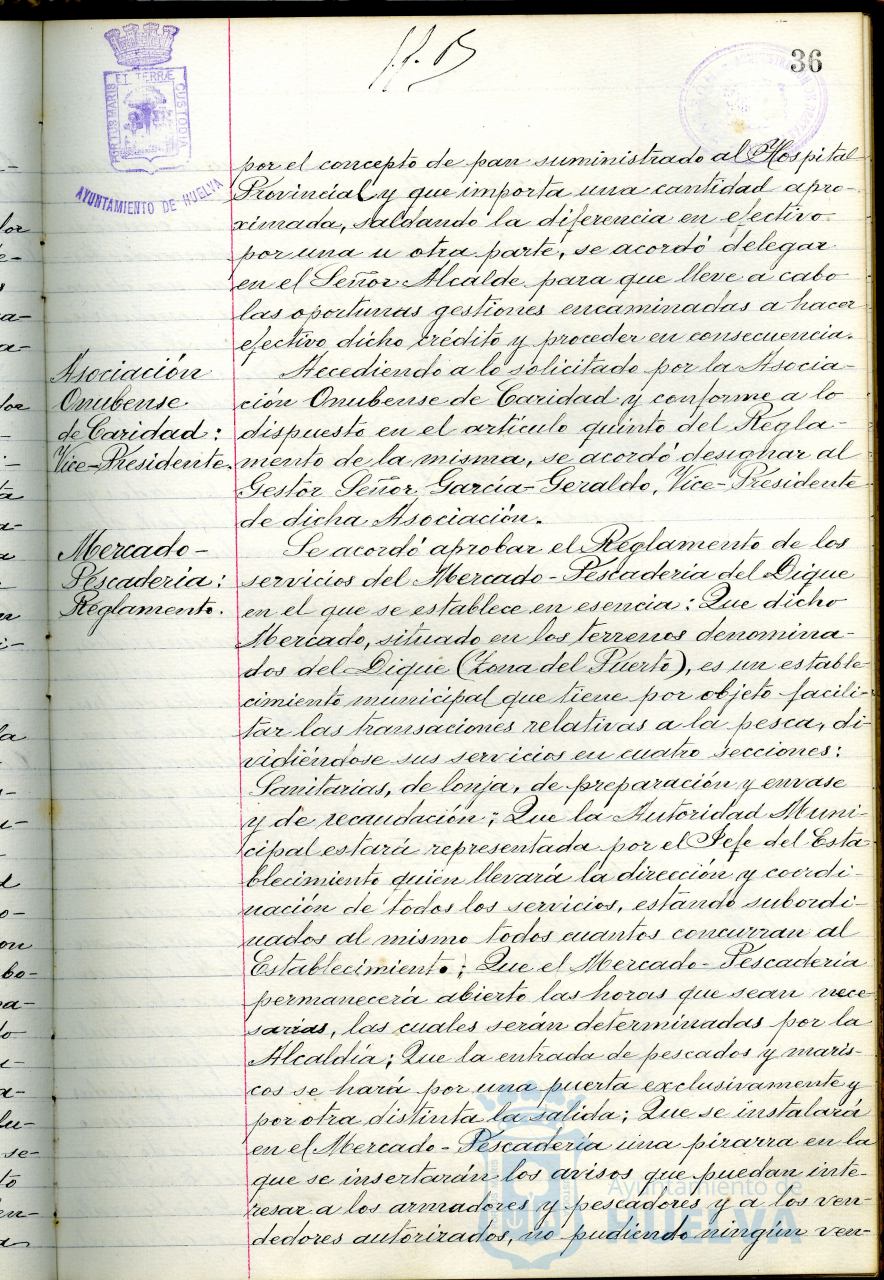 36
PORTUS MARIS ET TERRÆ CUSTODIA
AYUNTAMIENTO DE HUELVA
por el concepto de pan suministrado al Hospital
Provincial y que importa una cantidad apro-
ximada, saldando la diferencia en efectivo
por una u otra parte, se acordó delegar
en el Señor Alcalde para que lleve a cabo
las oportunas gestiones encaminadas a hacer
efectivo dicho crédito y proceder en consecuencia.
Asociación
Onubense
de Caridad:
Vice-Presidente.
Accediendo a lo solicitado por la Asocia-
ción Onubense de Caridad y conforme a lo
dispuesto en el artículo quinto del Regla-
mento de la misma, se acordó designar al
Gestor Señor García-Geraldo, Vice-Presidente
de dicha Asociación.
Mercado-
Pescadería:
Reglamento.
Se acordó aprobar el Reglamento de los
servicios del Mercado-Pescadería del Dique
en el que se establece en esencia: Que dicho
Mercado, situado en los terrenos denomina-
dos del Dique (Zona del Puerto), es un estable-
cimiento municipal que tiene por objeto facili-
tar las transaciones relativas a la pesca, di-
vidiéndose sus servicios en cuatro secciones:
Sanitarias, de lonja, de preparación y envase
y de recaudación; Que la Autoridad Muni-
cipal estará representada por el Jefe del Esta-
blecimiento quien llevará la dirección y coordi-
nación de todos los servicios, estando subordi-
nados al mismo todos cuantos concurran al
Establecimiento; Que el Mercado-Pescadería
permanecerá abierto las horas que sean nece-
sarias, las cuales serán determinadas por la
Alcaldía; Que la entrada de pescados y maris-
cos se hará por una puerta exclusivamente y
por otra distinta la salida; Que se instalará
en el Mercado-Pescadería una pizarra en la
que se insertarán los avisos que puedan inte-
resar a los armadores y pescadores y a los ven-
dedores autorizados, no pudiendo ningún ven-
Ayuntamiento de
HUELVA